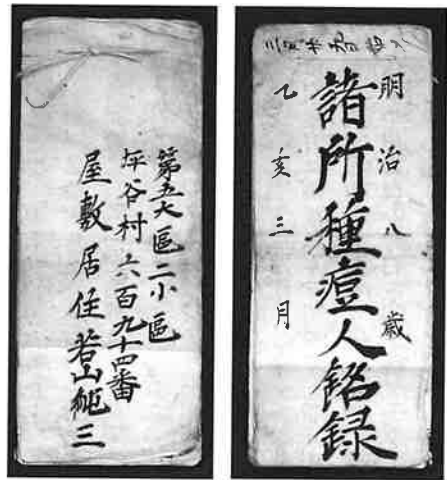 明治八歳
諸所種痘人銘録
乙亥三月
第五大區二小區
坪谷村六百九十四番
屋敷居住若山純三